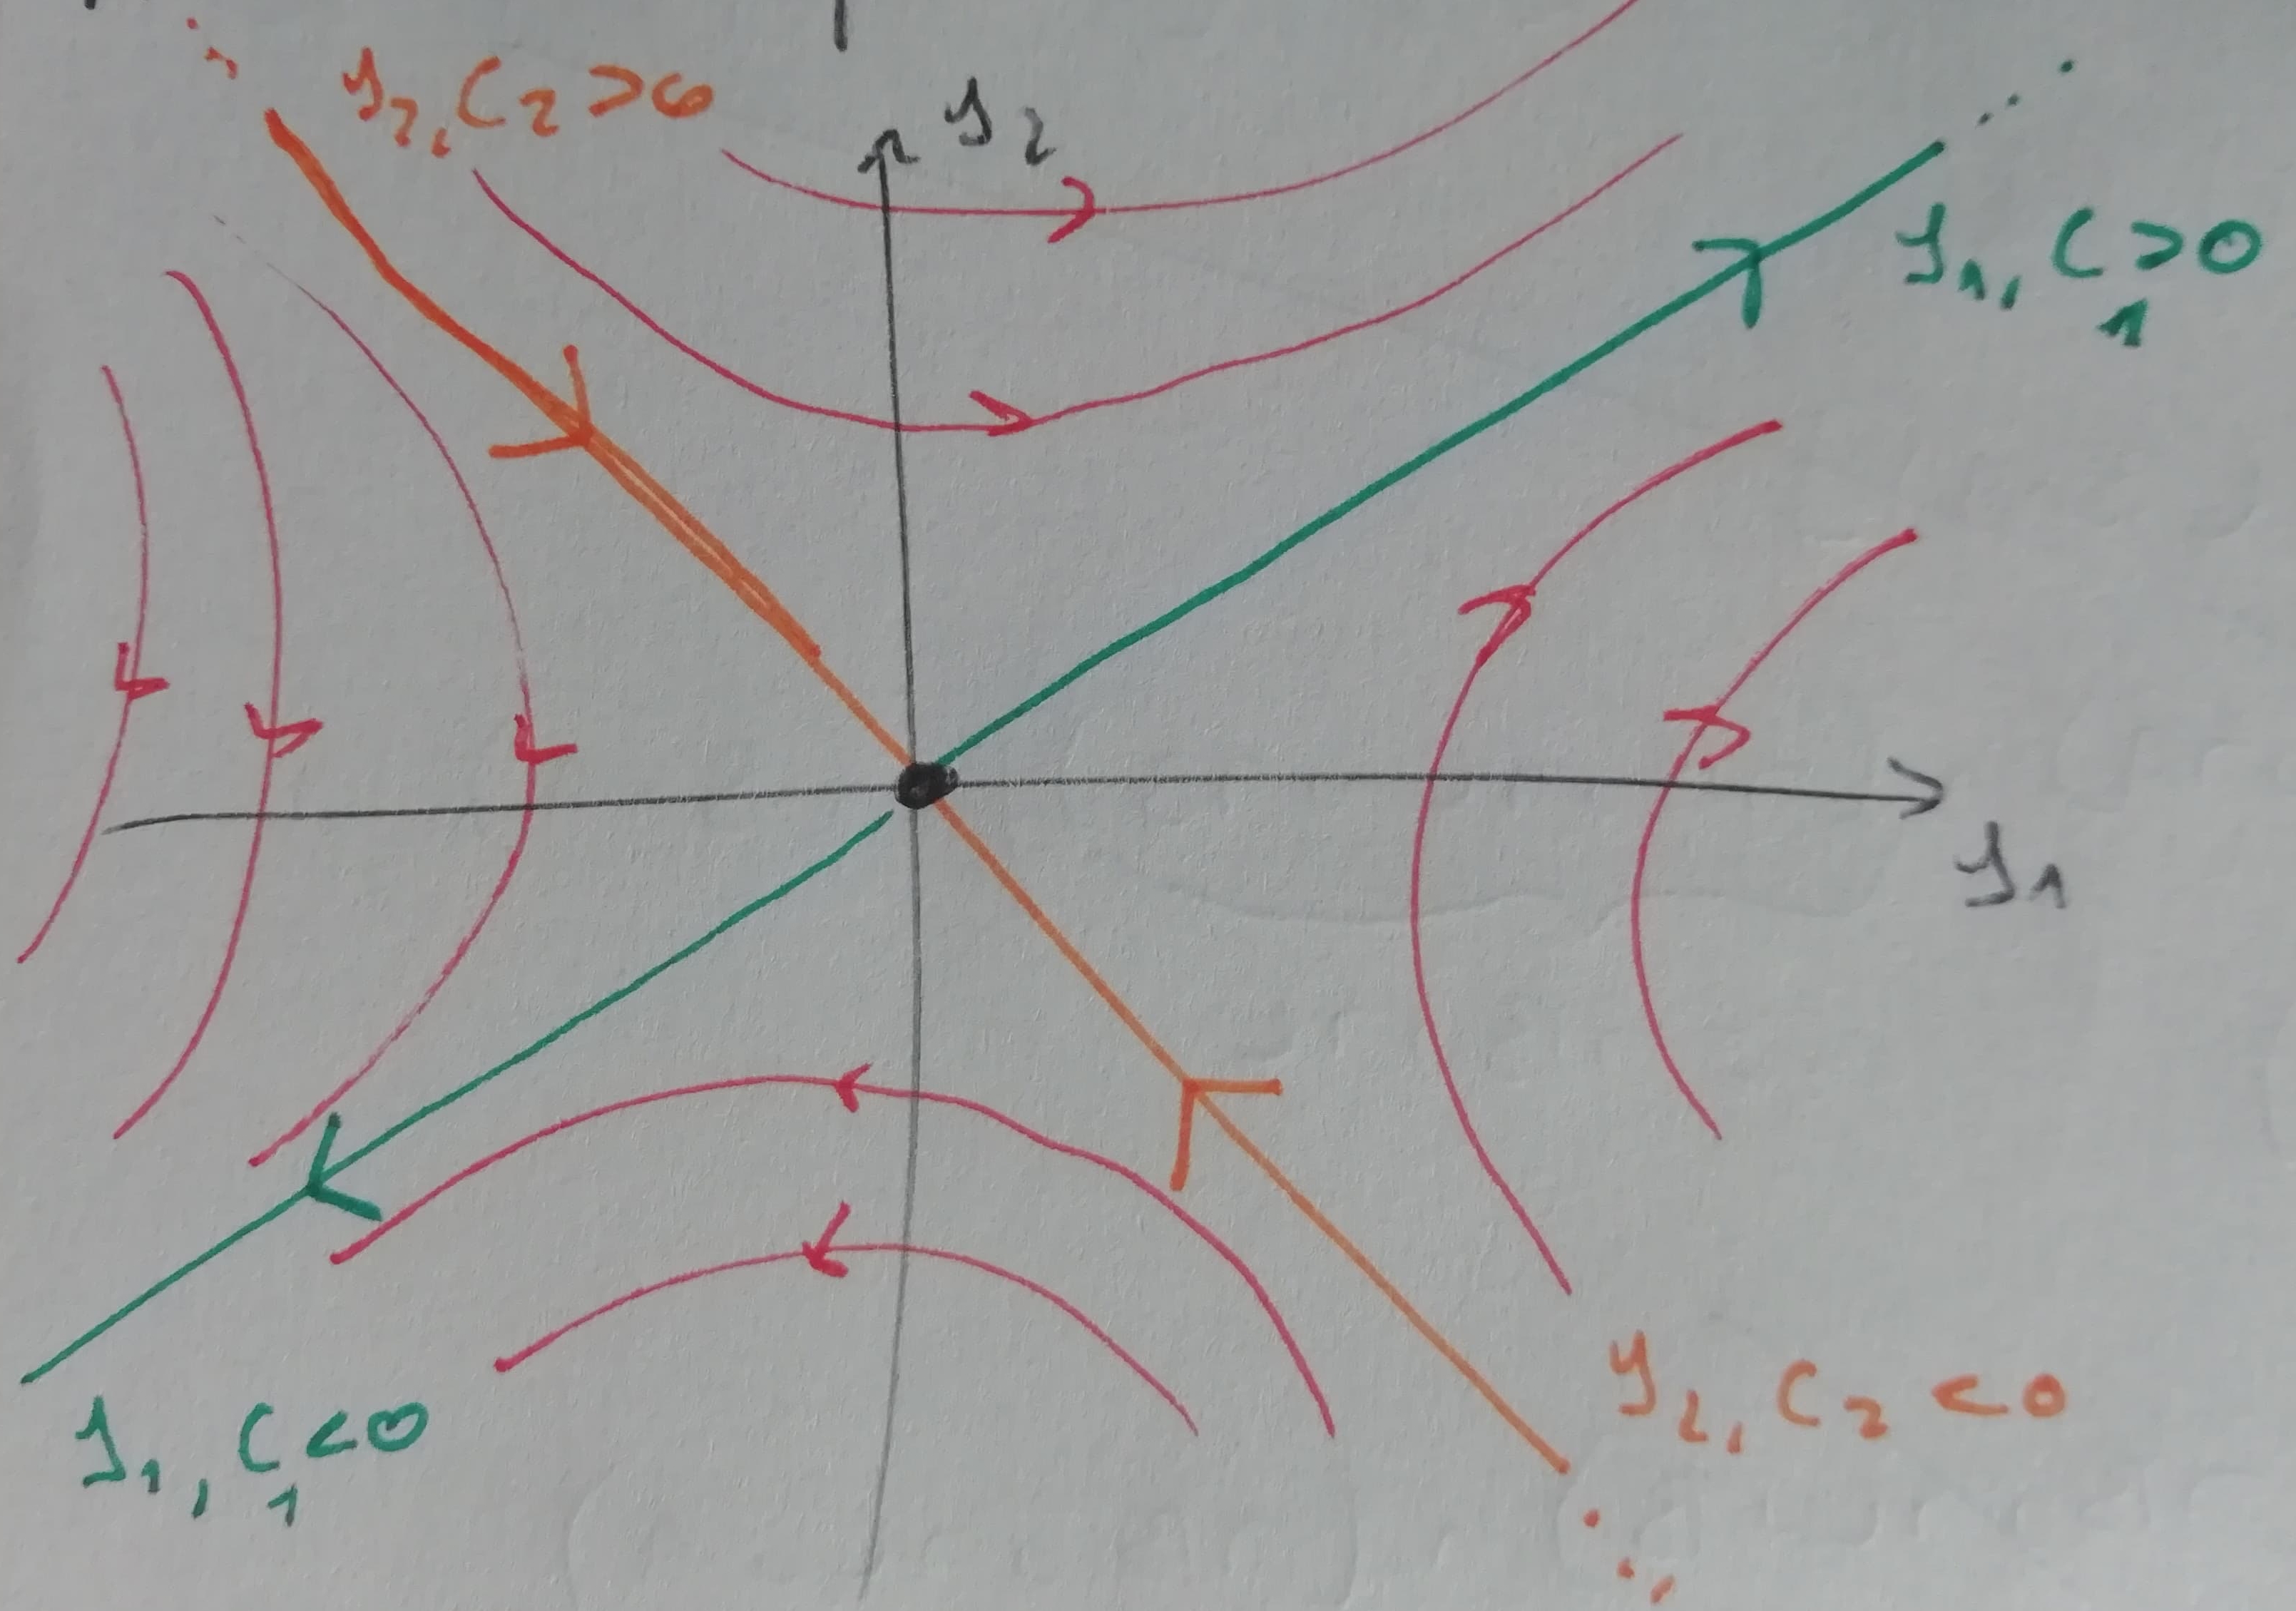 y₂, C₂ >0
y₂
y₁, C₁ >0
y₁
y₁, C₁ <0
y₂, C₂ <0